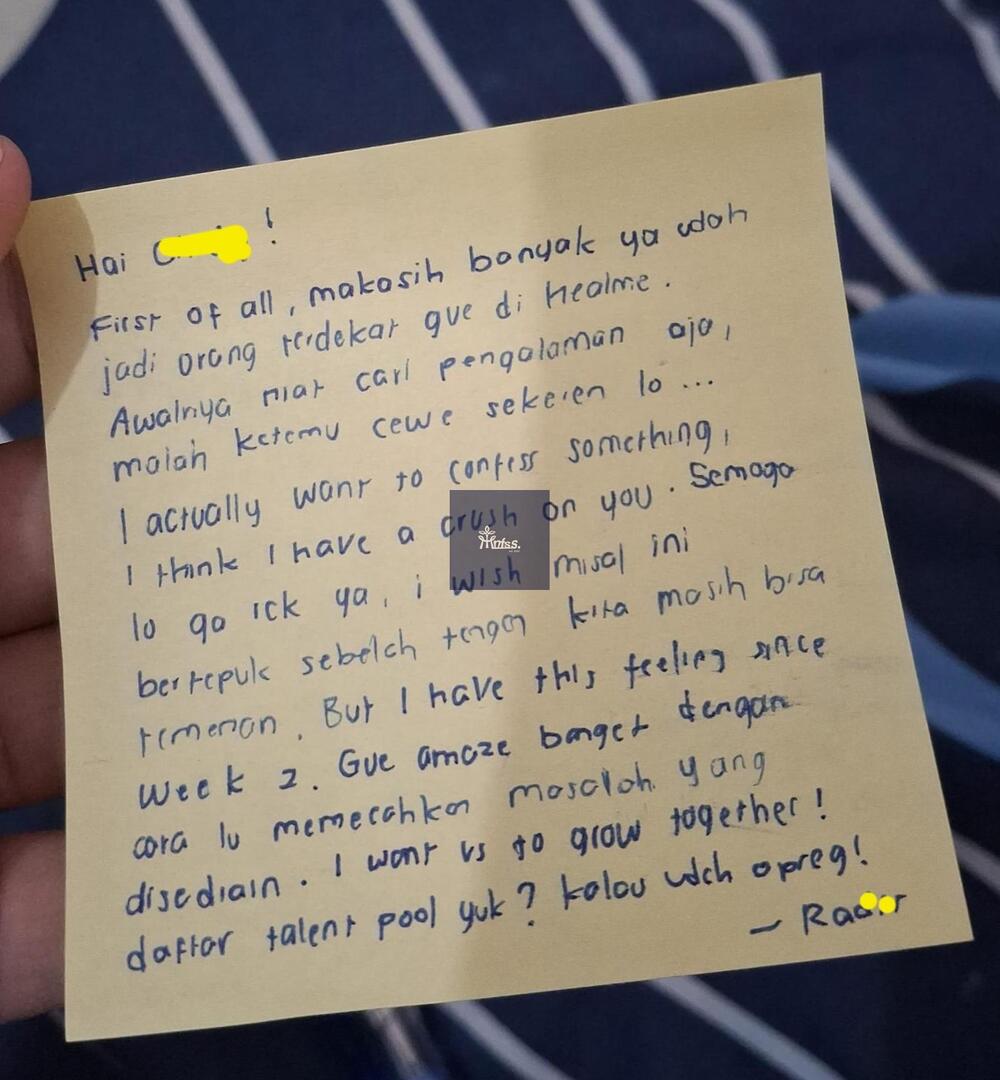 Hai !
First of all, makasih banyak ya udah
jadi orang terdekat gue di Healme.
Awalnya niat cari pengalaman aja,
malah ketemu cewe sekeren lo ...
I actually want to confess something,
I think I have a crush on you. Semoga
lo ga ick ya, i wish misal ini
bertepuk sebelah tangan kita masih bisa
temenan. But I have this feeling since
Week 2. Gue amaze banget dengan
cara lu memecahkan masalah yang
disediain. I want us to grow together!
daftar talent pool yuk? kalou udah opreg!
Hntss.